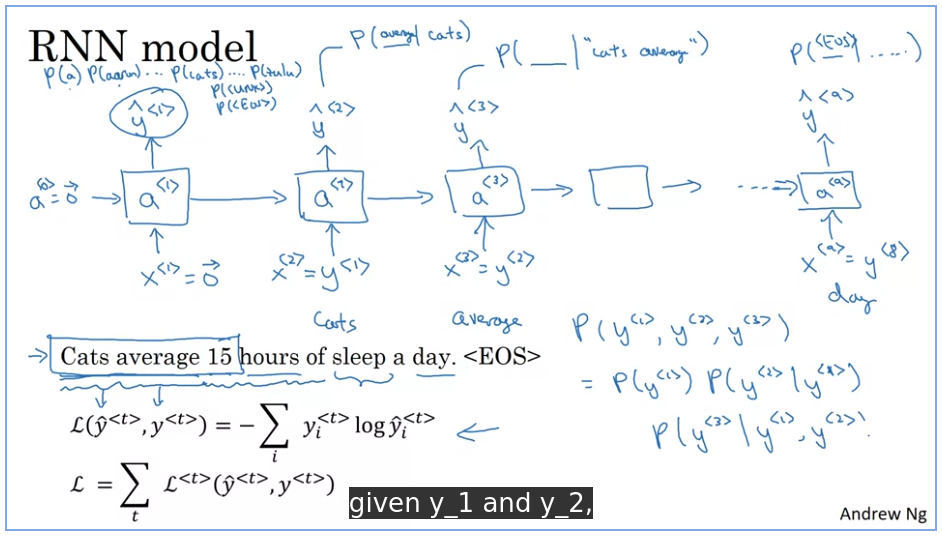 RNN model
P(average | cats)
P( __ | "cats average")
P(<EOS> | .....)
P(a) P(aaron) ... P(cats) .... P(zulu)
P(<UNK>)
P(<EOS>)
ŷ<1> ŷ<2> ŷ<3> ŷ<9>
a<0>=0⃗ a<1> a<2> a<3> a<9>
x<1>=0⃗ x<2>=y<1> x<3>=y<2> x<9>=y<8>
Cats average day
Cats average 15 hours of sleep a day. <EOS>
P(y<1>, y<2>, y<3>)
= P(y<1>) P(y<2> | y<1>)
P(y<3> | y<1>, y<2>)
ℒ(ŷ<t>, y<t>) = −∑i yi<t> log ŷi<t>
ℒ = ∑t ℒ<t>(ŷ<t>, y<t>)
given y_1 and y_2,
Andrew Ng